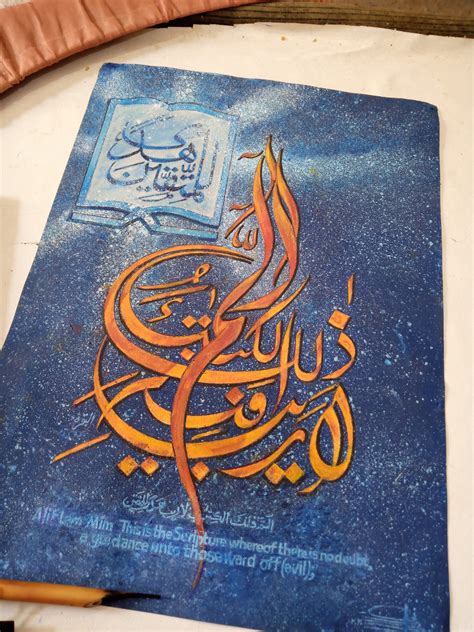 هدى
للمتقين
الم
ذلك الكتب
لا ريب فيه
Alif Lam Mim This is the Scripture whereof there is no doubt,
a guidance unto those ward off (evil);